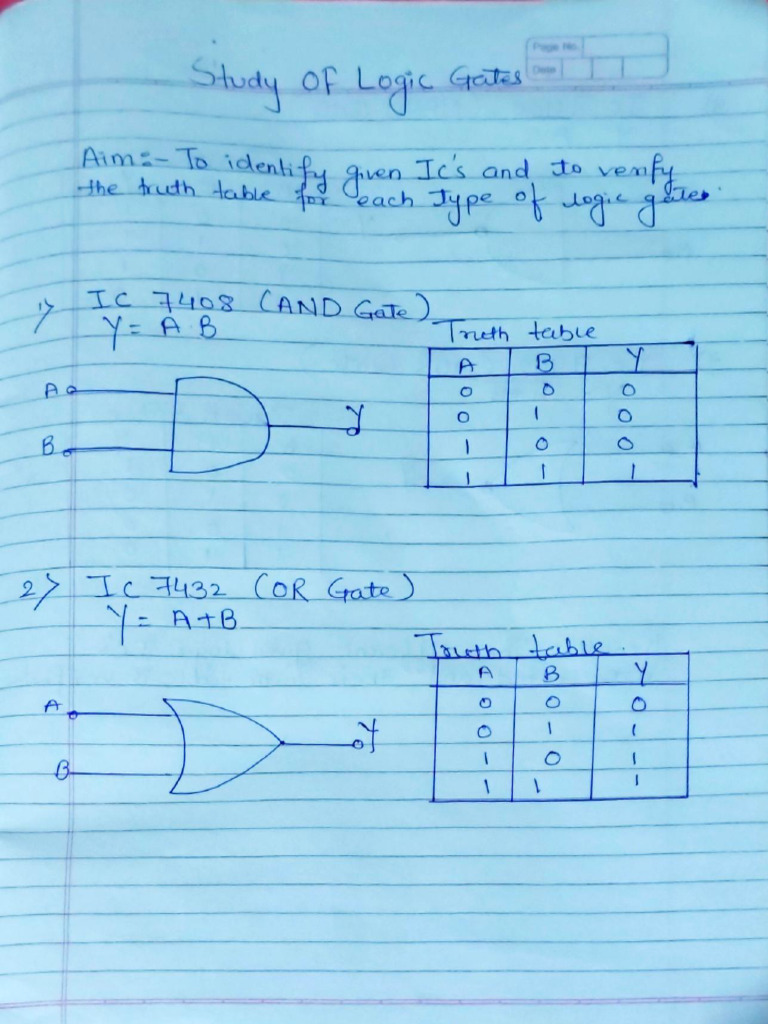 Page No.
Date
Study OF Logic Gates
Aim:- To identify given Ic's and to verify
the truth table for each Type of logic gates.
1> IC 7408 (AND Gate)
Y = A.B
Truth table
A B Y
0 0 0
0 1 0
1 0 0
1 1 1
A
B
Y
2> IC 7432 (OR Gate)
Y = A+B
Truth table.
A B Y
0 0 0
0 1 1
1 0 1
1 1 1
A
B
Y